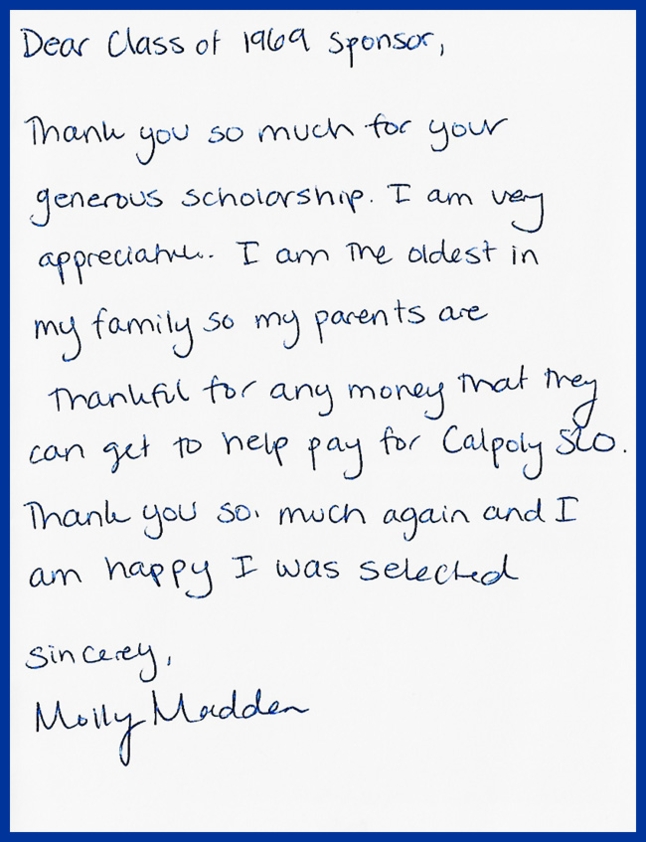 Dear Class of 1969 Sponsor,
Thank you so much for your
generous scholarship. I am very
appreciative. I am the oldest in
my family so my parents are
thankful for any money that they
can get to help pay for Calpoly SLO.
Thank you so much again and I
am happy I was selected
Sincerey,
Molly Madden